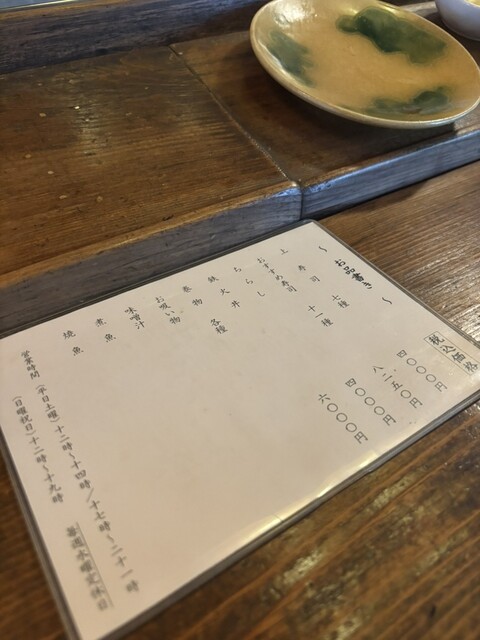 ～ お品書き ～ 税込価格
上寿司 七種 四〇〇〇円
おすすめ寿司 十一種 八二五〇円
ちらし 四〇〇〇円
鉄火丼 六〇〇〇円
巻物 各種
お吸い物
味噌汁
煮魚
焼魚
営業時間 (平日土曜)十二時～十四時/十七時～二十一時
(日曜祝日)十二時～十九時 毎週水曜定休日